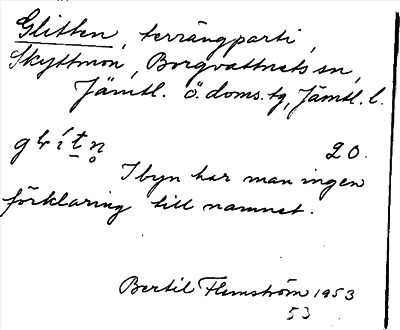 Glitten, terrängparti,
Skyttmon, Borgvattnets sn,
Jämtl. ö. doms. tg, Jämtl. l.
glít̲n̥ 20.
I byn har man ingen
förklaring till namnet.
Bertil Flemström 1953
53